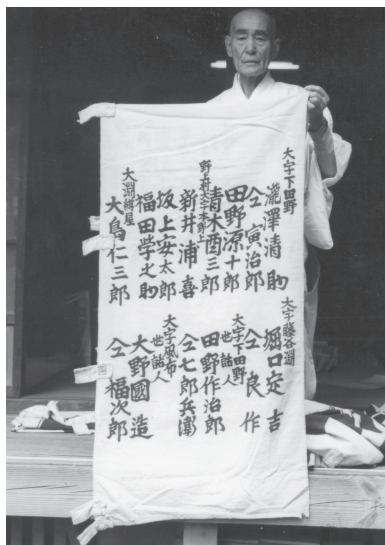 大字下田野
瀧澤清助
仝寅治郎
田野源十郎
青木酉三郎
野上村大字本野上
新井浦喜
坂上安太郎
福田学之助
大淵紺屋
大島仁三郎
大字藤谷淵
堀口定吉
仝良作
大字下田野
世話人
田野作治郎
仝七郎兵衛
大字風布
世話人
大野國造
仝福次郎